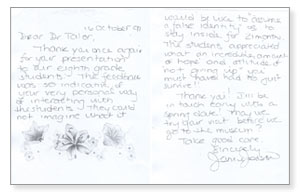 16 October 99
Dear Dr Toller,
Thank you once again
for your presentation
to our eighth grade
students. The feedback
was so
your very personal way
of interacting with
the students. They could
not imagine what it
would be like to assume
a false identity or to
stay inside for 21 months.
The students appreciated
what an incredible amount
of hope and attitude of
'not giving up' you
must have had to just
survive!
Thank you! I'll be
in touch early with a
spring date. May we
try again not before we
go to the museum?
Take good care
Sincerely